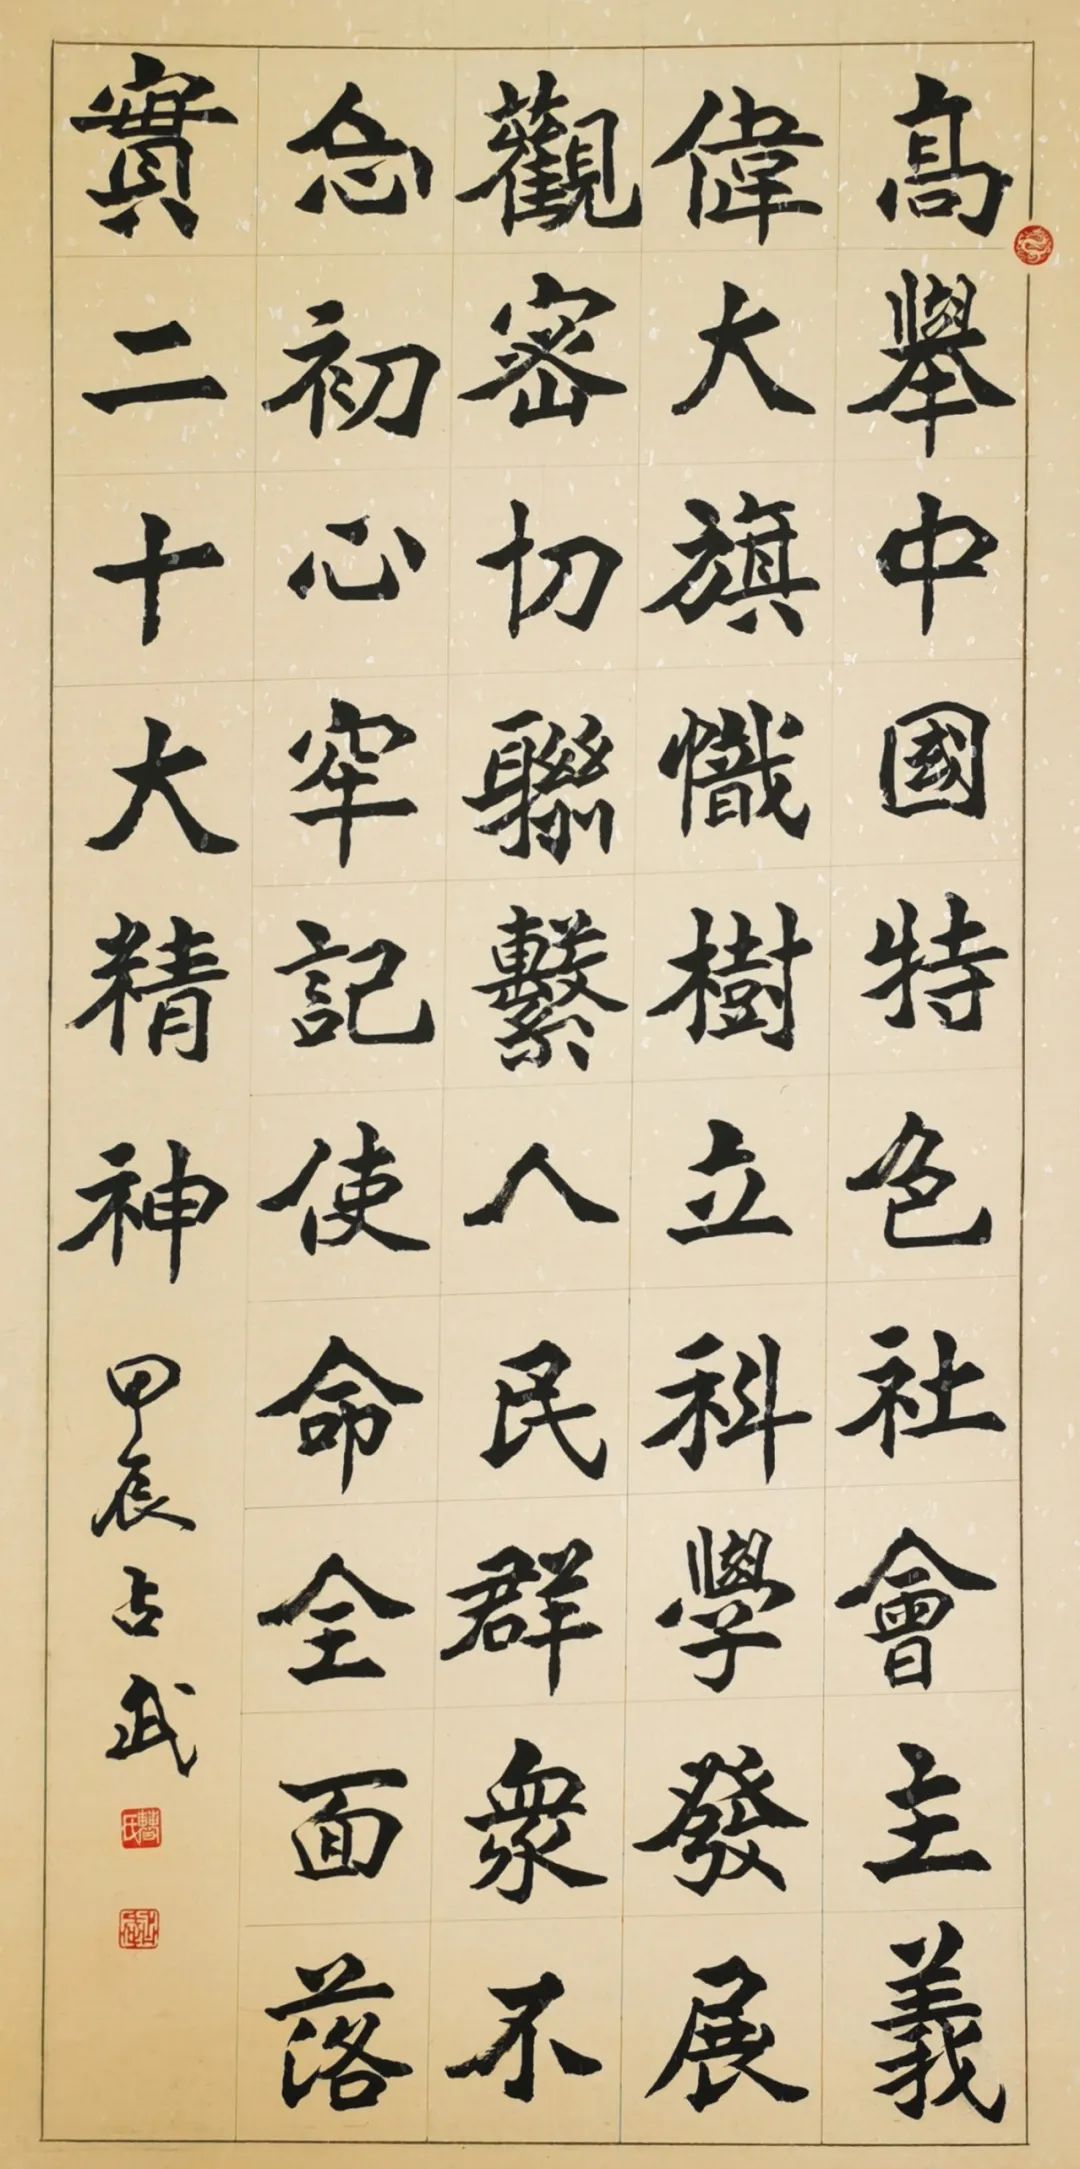 高舉中國特色社會主義
偉大旗幟樹立科學發展
觀密切聯繫人民群衆不
忘初心牢記使命全面落
實二十大精神
甲辰占武